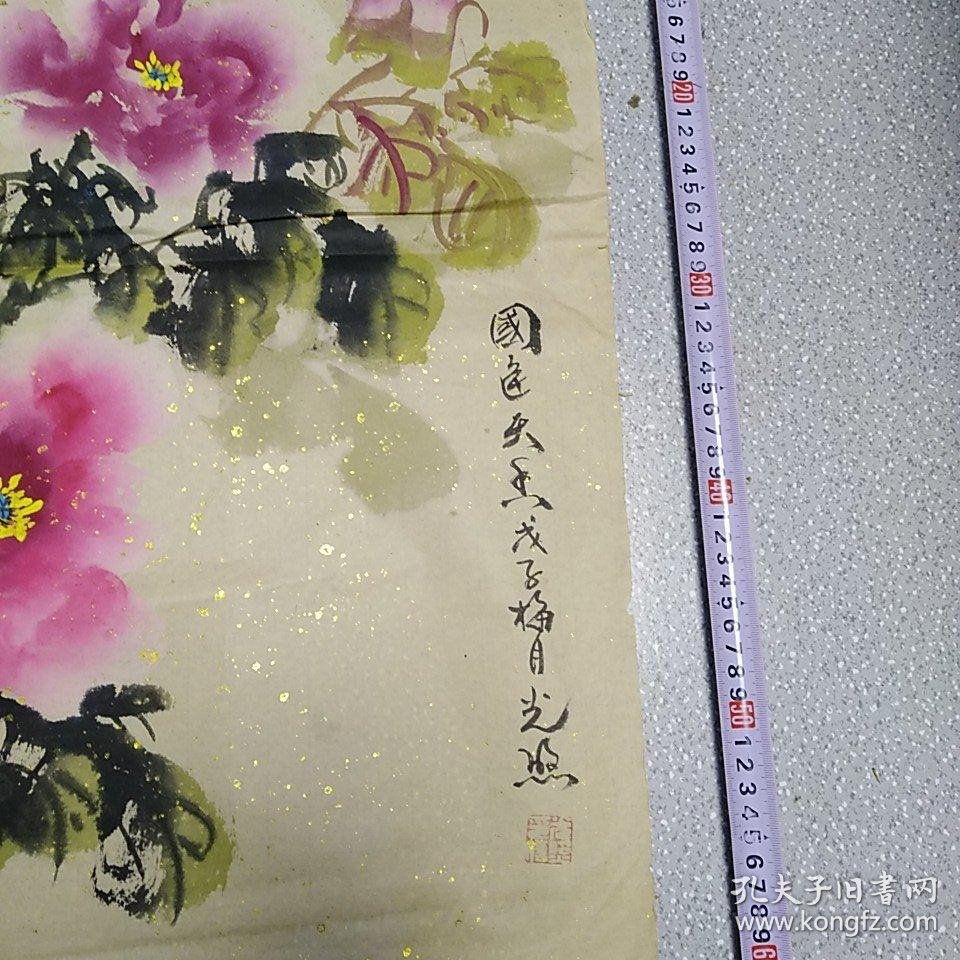 國色天香戊子梅月光照
5 6 7 8 9 20 1 2 3 4 5 6 7 8 9 30 1 2 3 4 5 6 7 8 9 40 1 2 3 4 5 6 7 8 9 50 1 2 3 4 5 6 7 8 9 6
孔夫子旧書网
www.kongfz.com